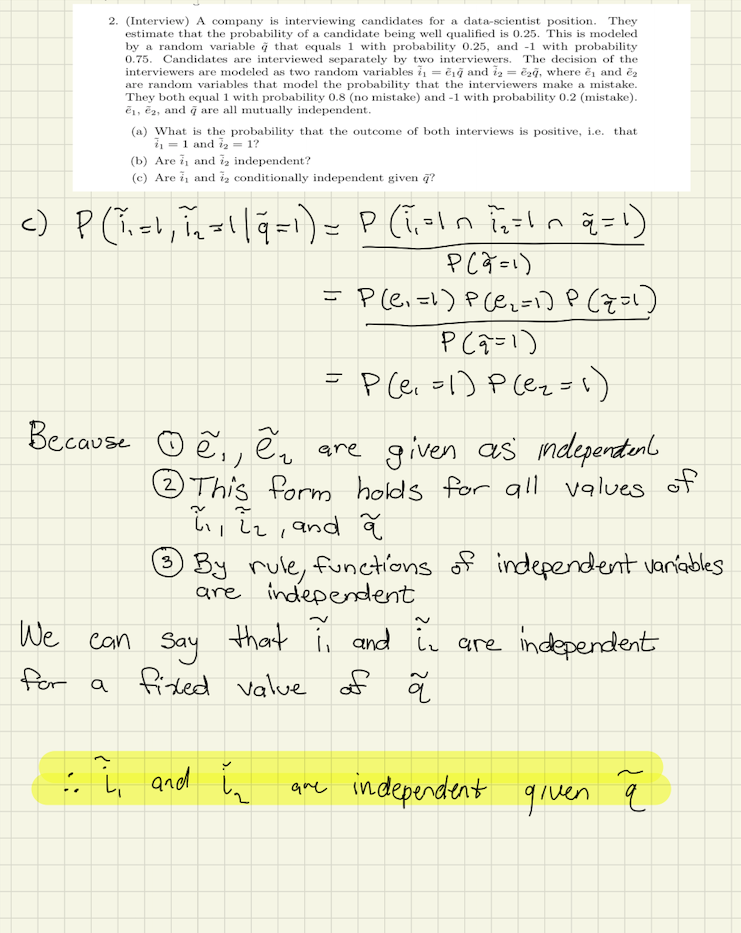 2. (Interview) A company is interviewing candidates for a data-scientist position. They
estimate that the probability of a candidate being well qualified is 0.25. This is modeled
by a random variable q̃ that equals 1 with probability 0.25, and -1 with probability
0.75. Candidates are interviewed separately by two interviewers. The decision of the
interviewers are modeled as two random variables ĩ₁ = ẽ₁q̃ and ĩ₂ = ẽ₂q̃, where ẽ₁ and ẽ₂
are random variables that model the probability that the interviewers make a mistake.
They both equal 1 with probability 0.8 (no mistake) and -1 with probability 0.2 (mistake).
ẽ₁, ẽ₂, and q̃ are all mutually independent.
(a) What is the probability that the outcome of both interviews is positive, i.e. that
ĩ₁ = 1 and ĩ₂ = 1?
(b) Are ĩ₁ and ĩ₂ independent?
(c) Are ĩ₁ and ĩ₂ conditionally independent given q̃?
c) P(ĩ₁=1, ĩ₂=1|q̃=1) = P(ĩ₁=1 ∩ ĩ₂=1 ∩ q̃=1)
P(q̃=1)
= P(e₁=1) P(e₂=1) P(q̃=1)
P(q̃=1)
= P(e₁=1) P(e₂=1)
Because ① ẽ₁, ẽ₂ are given as independent
② This form holds for all values of
ĩ₁, ĩ₂, and q̃
③ By rule, functions of independent variables
are independent
We can say that ĩ₁ and ĩ₂ are independent
for a fixed value of q̃
∴ ĩ₁ and ĩ₂ are independent given q̃